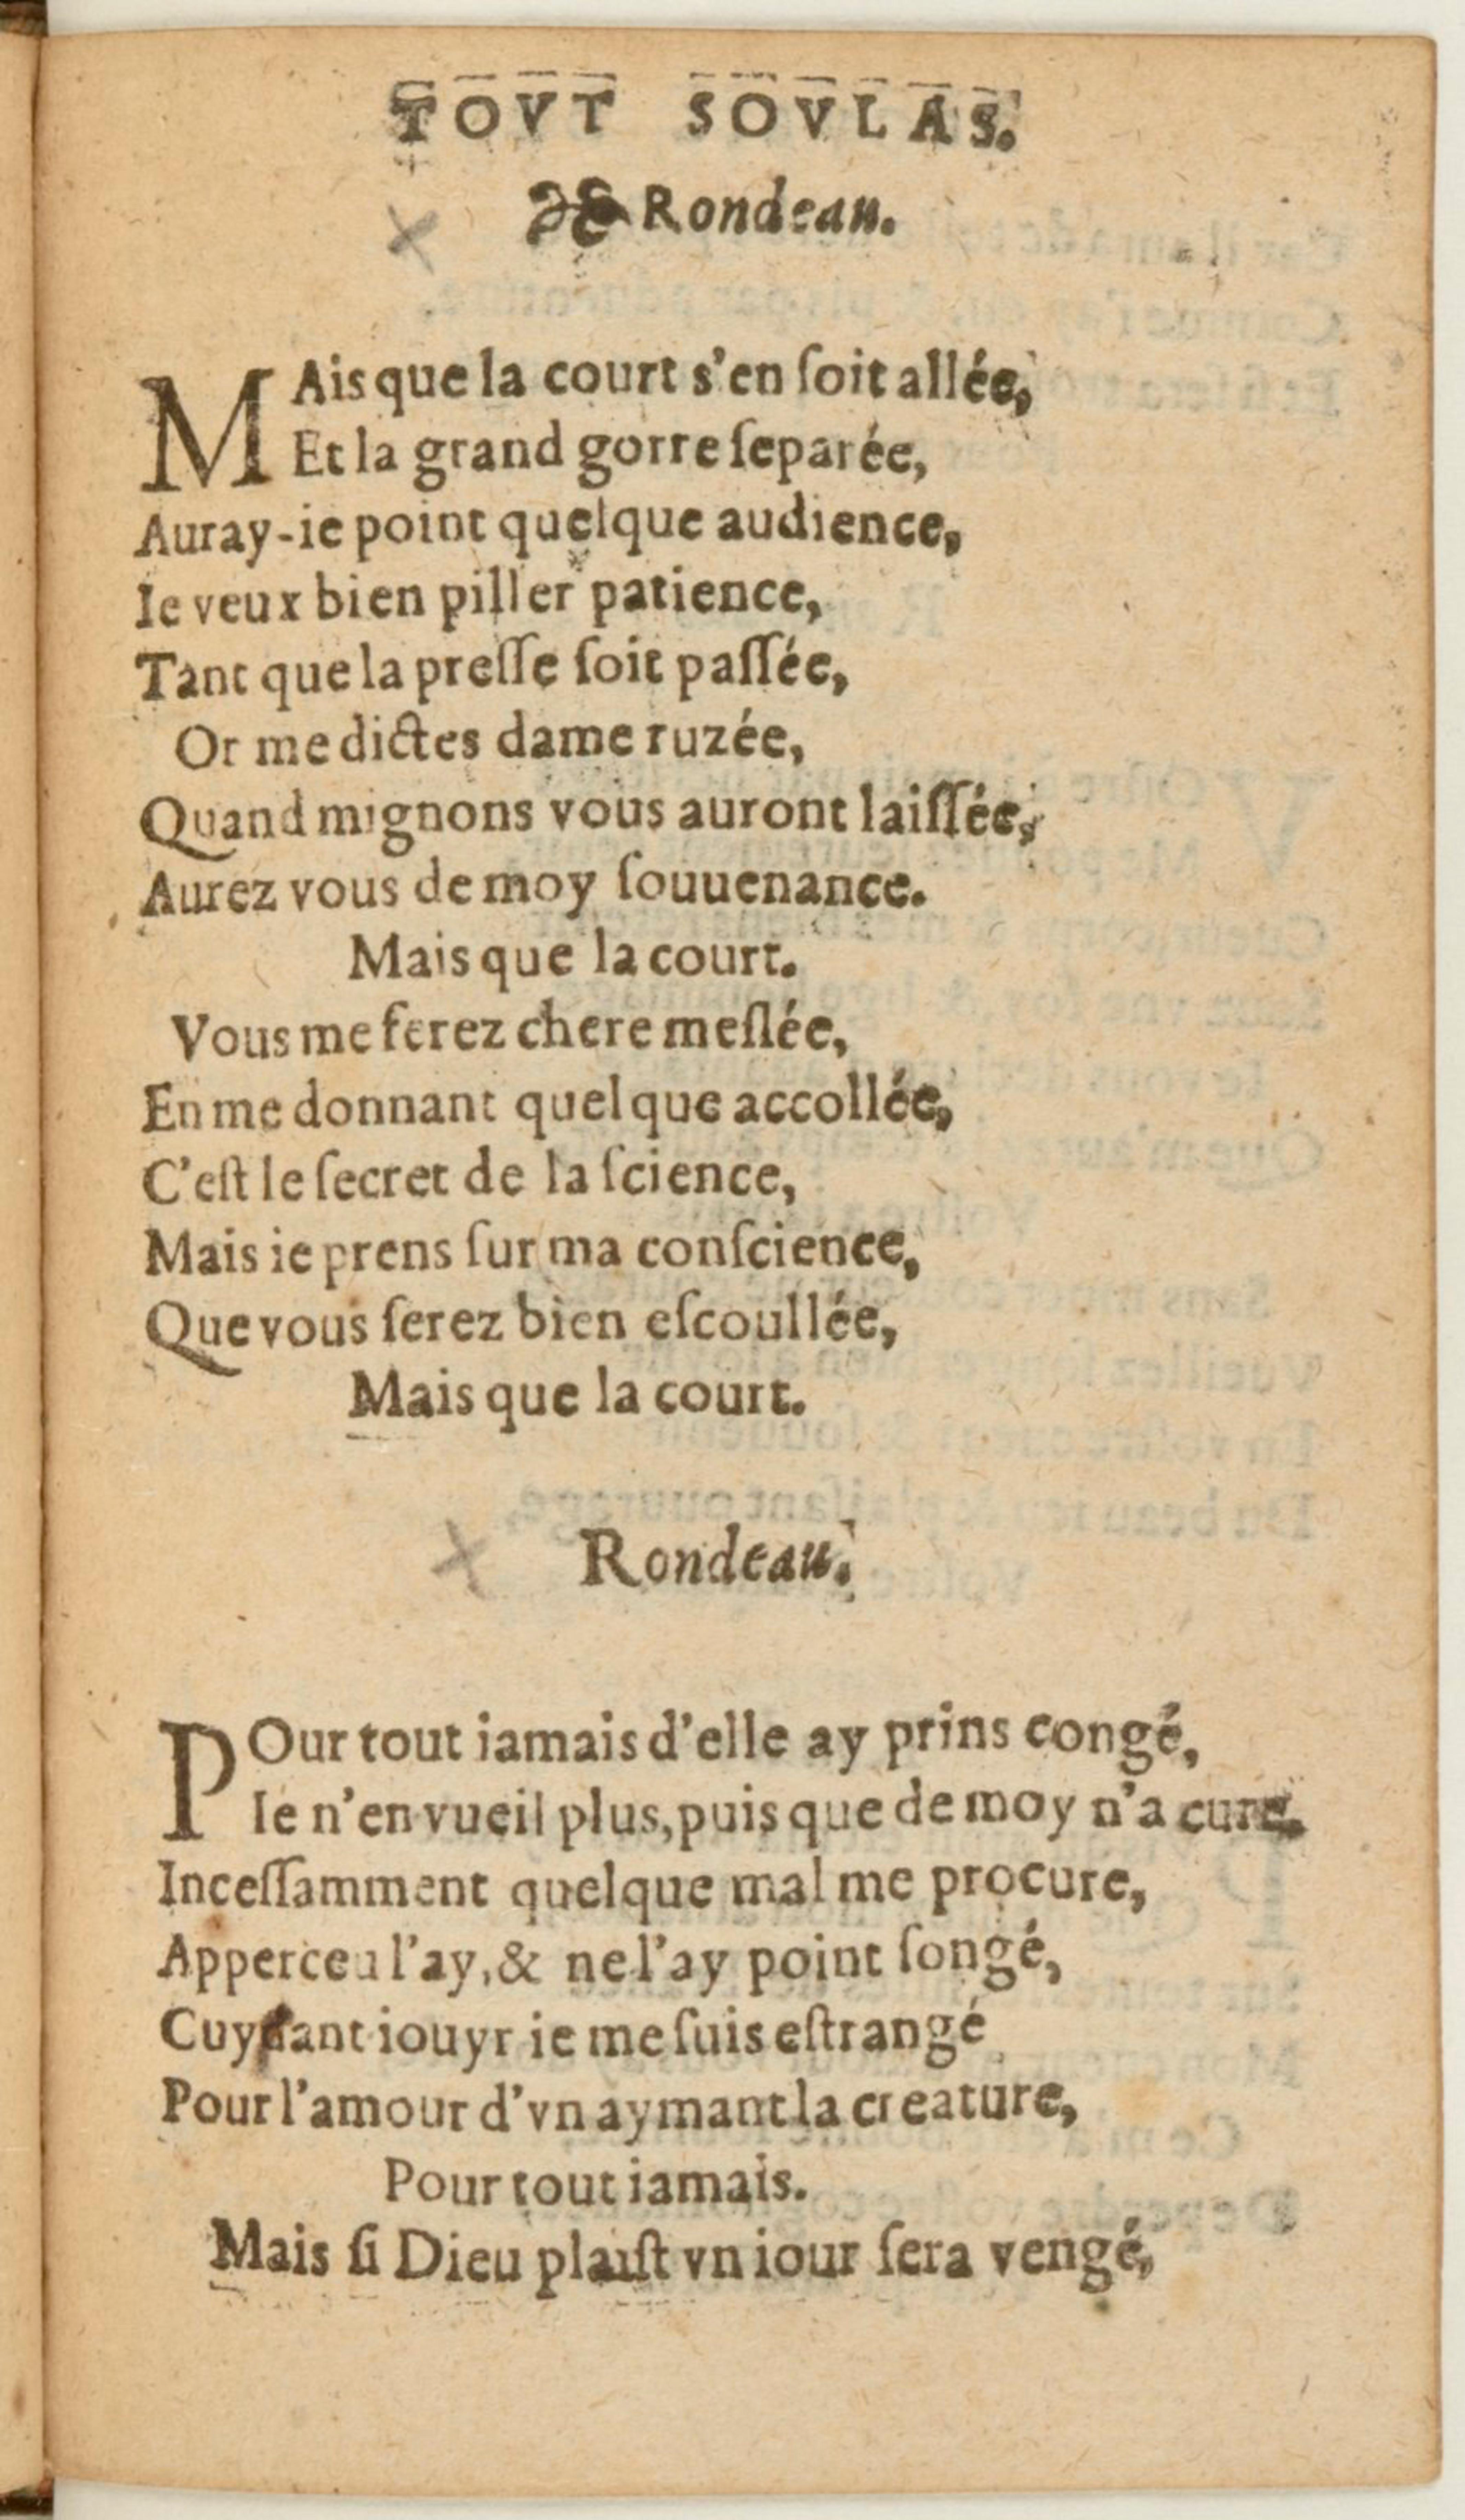 TOVT SOVLAS.
Rondeau.
MAis que la court s'en ſoit allée,
Et la grand gorre ſeparée,
Auray-ie point quelque audience,
Ie veux bien piller patience,
Tant que la preſſe ſoit paſſée,
Or me dictes dame ruzée,
Quand mignons vous auront laiſſée,
Aurez vous de moy ſouuenance.
Mais que la court.
Vous me ferez chere meſlée,
En me donnant quelque accollée,
C'eſt le ſecret de la ſcience,
Mais ie prens ſur ma conſcience,
Que vous ſerez bien eſcoullée,
Mais que la court.
Rondeau.
POur tout iamais d'elle ay prins congé,
Ie n'en vueil plus, puis que de moy n'a cure.
Inceſſamment quelque mal me procure,
Apperceu l'ay, & ne l'ay point ſongé,
Cuydant iouyr ie me ſuis eſtrangé
Pour l'amour d'vn aymant la creature,
Pour tout iamais.
Mais ſi Dieu plaiſt vn iour ſera vengé,